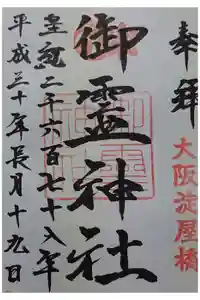 奉拝
大阪淀屋橋
御霊神社
皇紀二千六百七十八年
平成三十年長月十九日